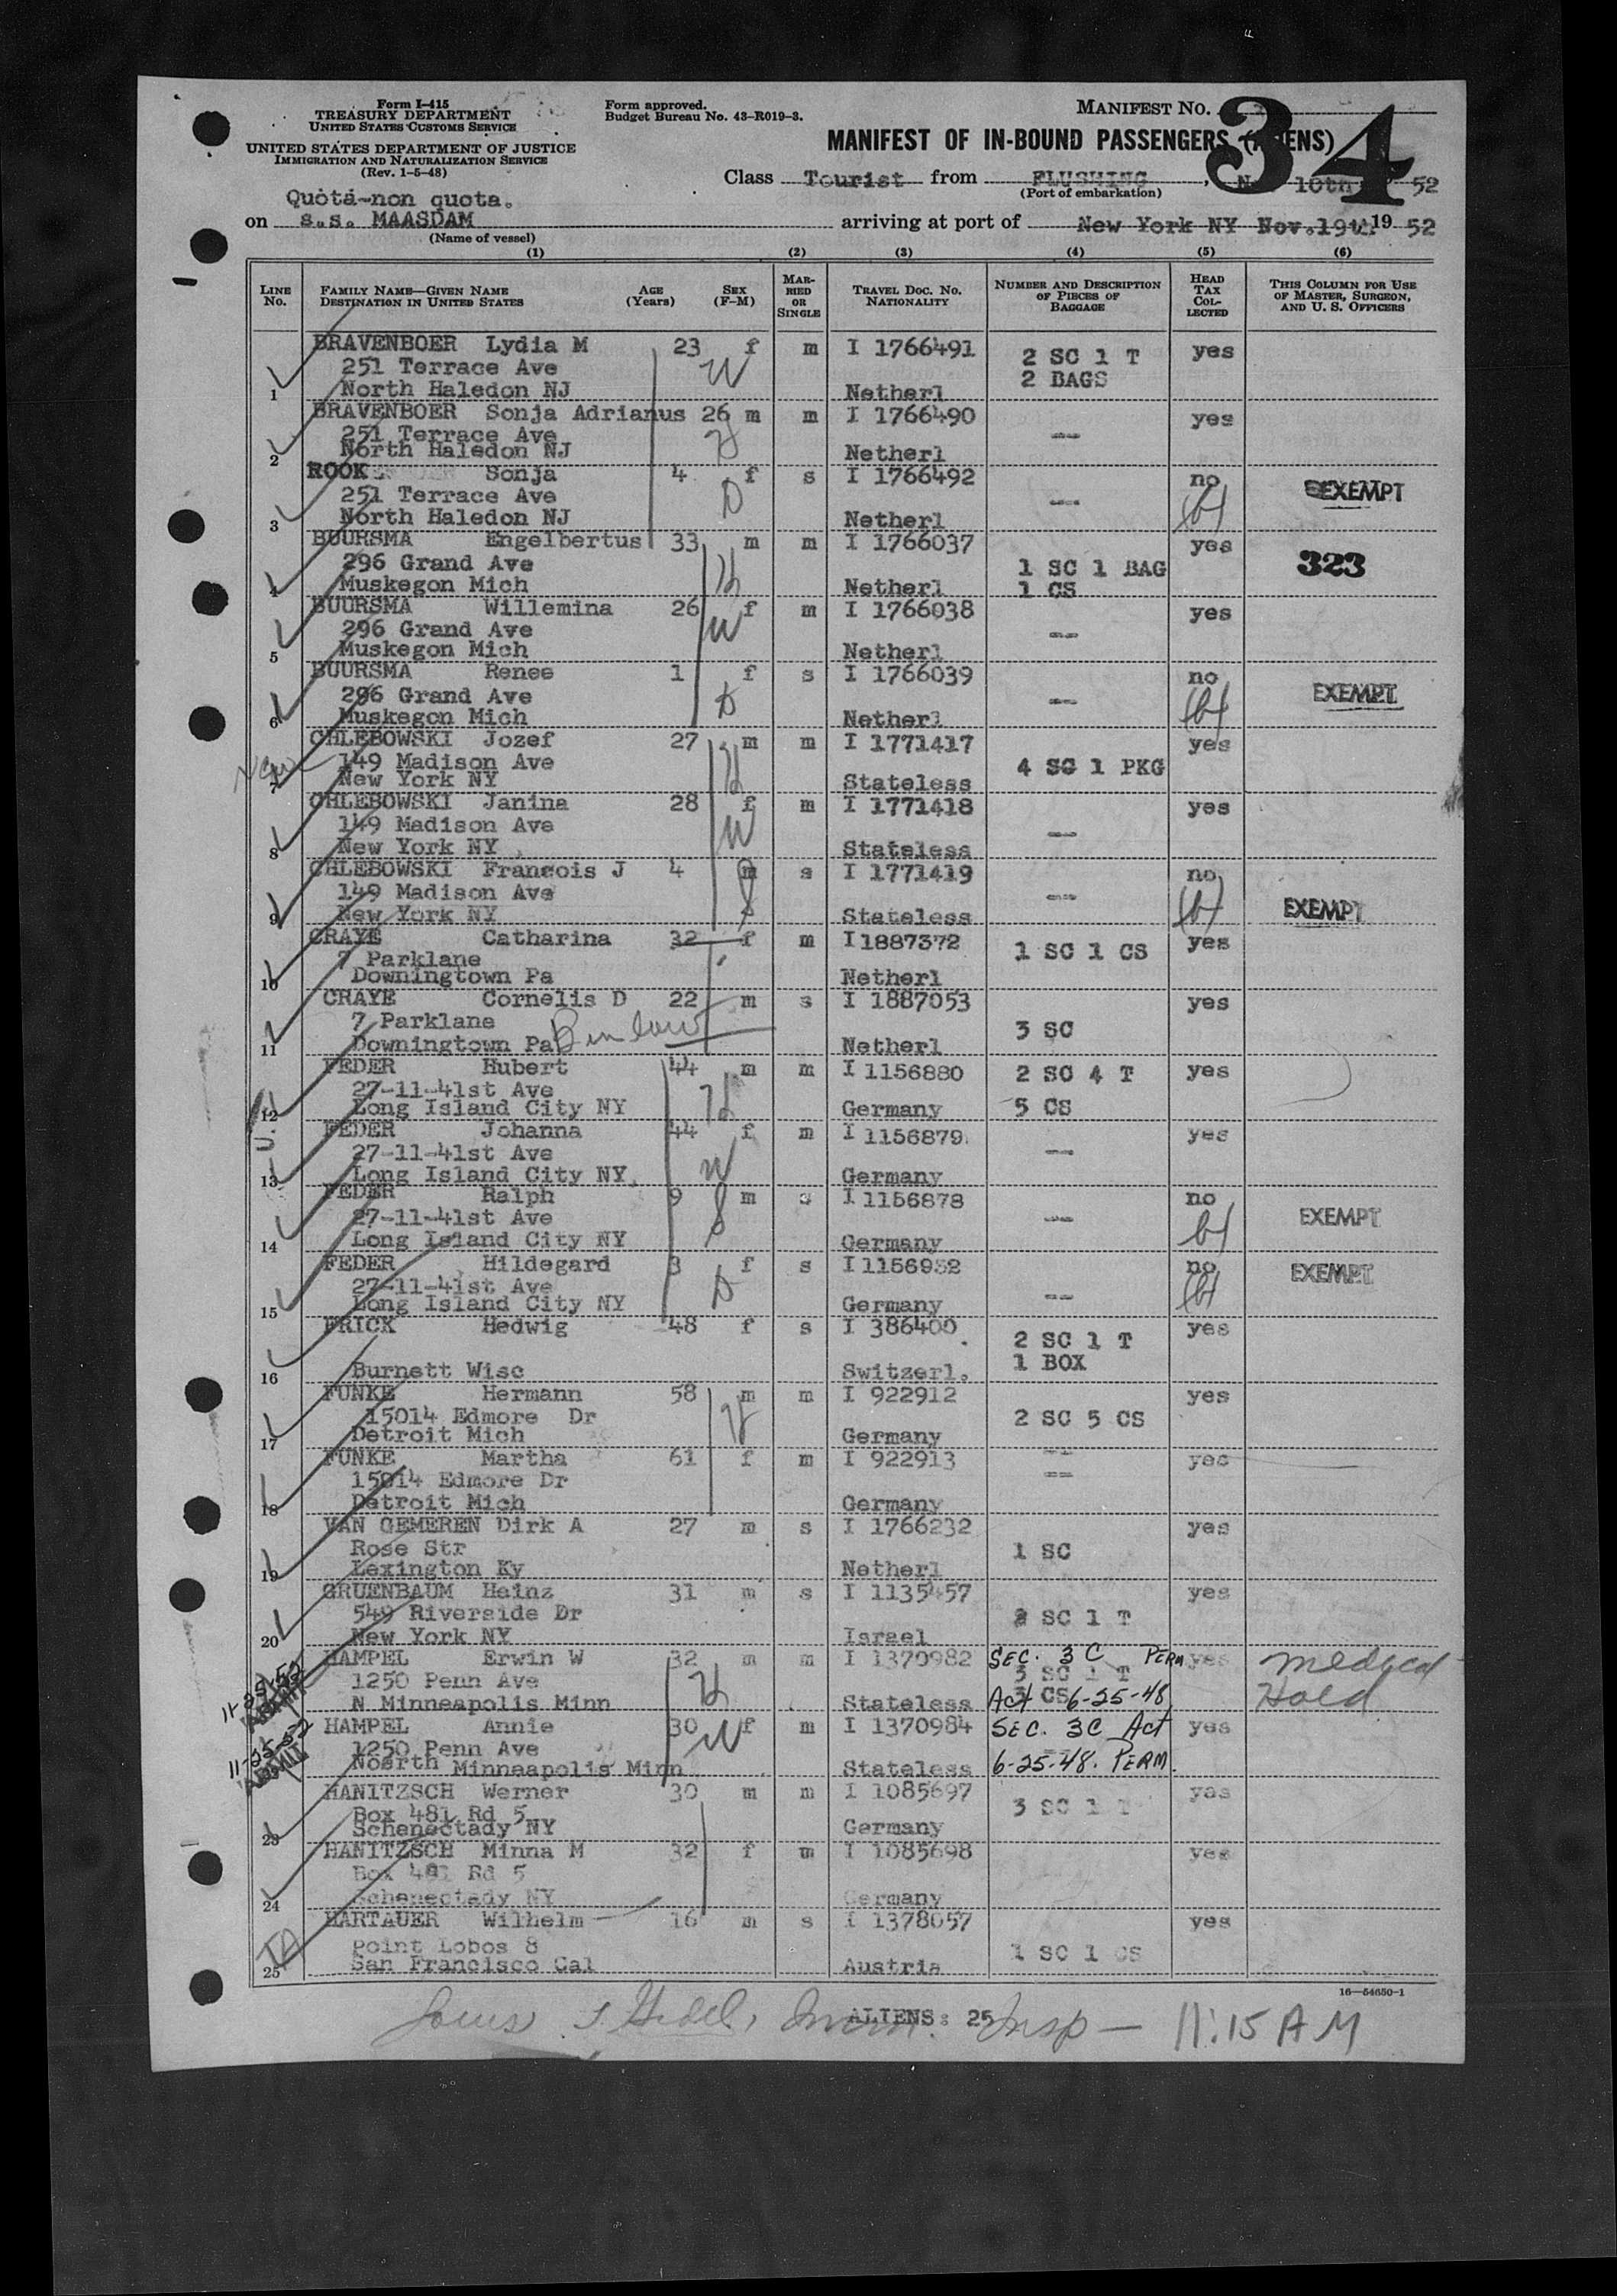 Form I-415
TREASURY DEPARTMENT
UNITED STATES CUSTOMS SERVICE
UNITED STATES DEPARTMENT OF JUSTICE
IMMIGRATION AND NATURALIZATION SERVICE
(Rev. 1-5-48)
Form approved.
Budget Bureau No. 43-R019-3.
MANIFEST NO. 34
MANIFEST OF IN-BOUND PASSENGERS (ALIENS)
Class Tourist from FLUSHING, 10th 52
(Port of embarkation)
Quota-non quota.
on s.s. MAASDAM arriving at port of New York NY Nov.19th 19 52
(Name of vessel)
(1) (2) (3) (4) (5) (6)
LINE NO. FAMILY NAME—GIVEN NAME DESTINATION IN UNITED STATES AGE (Years) SEX (F-M) MARRIED OR SINGLE TRAVEL DOC. NO. NATIONALITY NUMBER AND DESCRIPTION OF PIECES OF BAGGAGE HEAD TAX COLLECTED THIS COLUMN FOR USE OF MASTER, SURGEON, AND U. S. OFFICERS
BRAVENBOER Lydia M 23 f m I 1766491 2 SC 1 T yes
251 Terrace Ave W 2 BAGS
1 North Haledon NJ Netherl
BRAVENBOER Sonja Adrianus 26 m m I 1766490 yes
251 Terrace Ave H --
2 North Haledon NJ Netherl
ROOK Sonja 4 f s I 1766492 no EXEMPT
251 Terrace Ave D -- (b)
3 North Haledon NJ Netherl
BUURSMA Engelbertus 33 m m I 1766037 yes 323
296 Grand Ave H 1 SC 1 BAG
4 Muskegon Mich Netherl 1 CS
BUURSMA Willemina 26 f m I 1766038 yes
296 Grand Ave W --
5 Muskegon Mich Netherl
BUURSMA Renee 1 f s I 1766039 no EXEMPT
296 Grand Ave D -- (b)
6 Muskegon Mich Netherl
CHLEBOWSKI Jozef 27 m m I 1771417 yes
149 Madison Ave H 4 SC 1 PKG
7 New York NY Stateless
CHLEBOWSKI Janina 28 f m I 1771418 yes
149 Madison Ave W --
8 New York NY Stateless
CHLEBOWSKI Francois J 4 m s I 1771419 no
149 Madison Ave S -- (b) EXEMPT
9 New York NY Stateless
CRAYE Catharina 32 f m I 1887372 1 SC 1 CS yes
7 Parklane
10 Downingtown Pa Netherl
CRAYE Cornelis D 22 m s I 1887053 yes
7 Parklane 3 SC
11 Downingtown Pa Netherl
FEDER Hubert 44 m m I 1156880 2 SC 4 T yes
27-11-41st Ave H
12 Long Island City NY Germany 5 CS
FEDER Johanna 44 f m I 1156879 yes
27-11-41st Ave W --
13 Long Island City NY Germany
FEDER Ralph 9 m s I 1156878 no EXEMPT
27-11-41st Ave S -- (b)
14 Long Island City NY Germany
FEDER Hildegard 3 f s I 1156932 no EXEMPT
27-11-41st Ave D -- (b)
15 Long Island City NY Germany
FRICK Hedwig 48 f s I 386400 yes
2 SC 1 T
16 Burnett Wisc Switzerl. 1 BOX
FUNKE Hermann 58 m m I 922912 yes
15014 Edmore Dr H 2 SC 5 CS
17 Detroit Mich Germany
FUNKE Martha 61 f m I 922913 -- yes
15014 Edmore Dr --
18 Detroit Mich Germany
VAN GEMEREN Dirk A 27 m s I 1766232 yes
Rose Str 1 SC
19 Lexington Ky Netherl
GRUENBAUM Heinz 31 m s I 1135457 yes
549 Riverside Dr 2 SC 1 T
20 New York NY Israel
11-25-52 HAMPEL Erwin W 32 m m I 1370982 SEC. 3 C PERM yes Medical
ADMIT 1250 Penn Ave H 3 SC 1 T
N Minneapolis Minn Stateless Act CS 6-25-48 Hold
11-25-52 HAMPEL Annie 30 f m I 1370984 SEC. 3C Act yes
ADMIT 1250 Penn Ave W
Noerth Minneapolis Minn Stateless 6-25-48. PERM.
HANITZSCH Werner 30 m m I 1085697 yes
Box 481 Rd 5 3 SC 1 T
23 Schenectady NY Germany
HANITZSCH Minna M 32 f m I 1085698 yes
Box 481 Rd 5
24 Schenectady NY Germany
HARTAUER Wilhelm 16 m s I 1378057 yes
Point Lobos 8 1 SC 1 CS
25 San Francisco Cal Austria
16—54650-1
ALIENS: 25
Insp — 11:15 AM